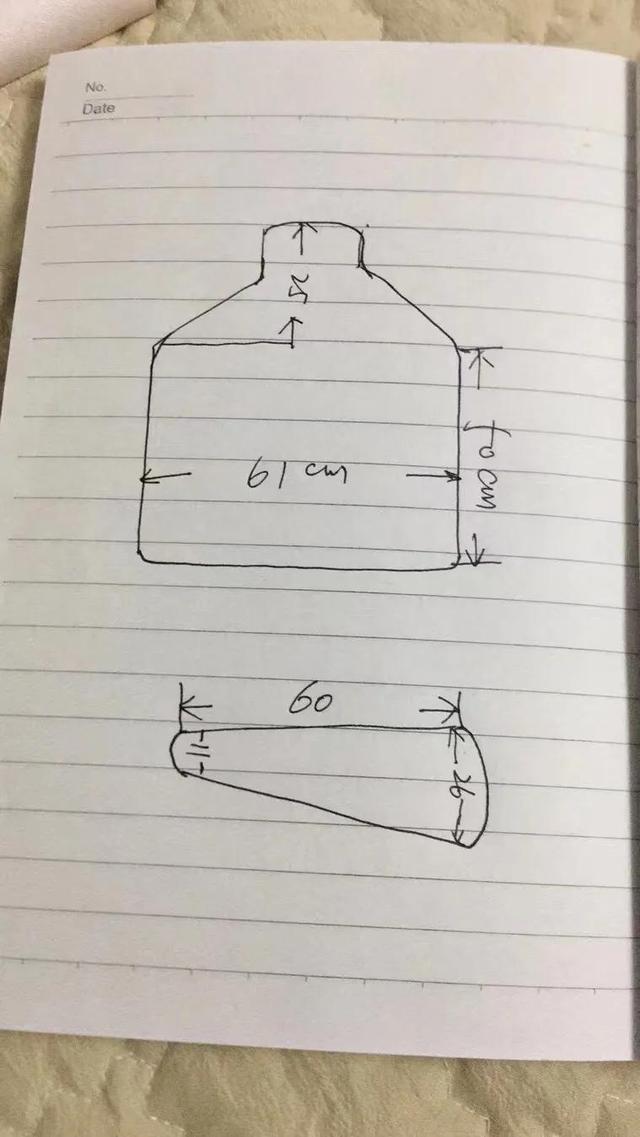 No.
Date
25
61 cm
50 cm
60
11
26